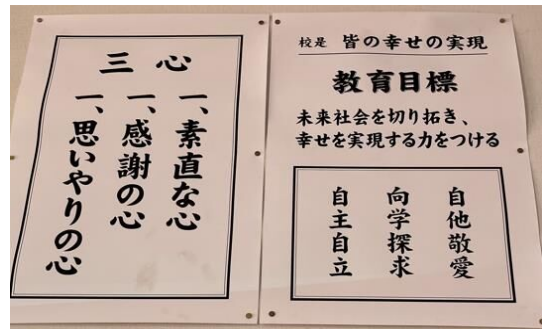 三心
一、素直な心
一、感謝の心
一、思いやりの心
校是 皆の幸せの実現
教育目標
未来社会を切り拓き、
幸せを実現する力をつける
自他敬愛
向学探求
自主自立